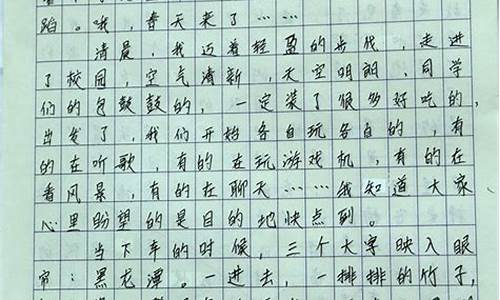 蹈。哦，春天来了……
清晨，我迈着轻盈的步伐，走进
了校园，空气清新，天空明朗，同学
们的包鼓鼓的，一定装了很多好吃的，
出发了，我们开始各自玩各自的，有
的在听歌，有的在玩游戏机，有的在
看风景，有的在聊天……我知道大家
心里盼望的是目的地快点到。
当下车的时候，三个大字映入眼
帘：黑龙潭。一进去，一排排的竹子，